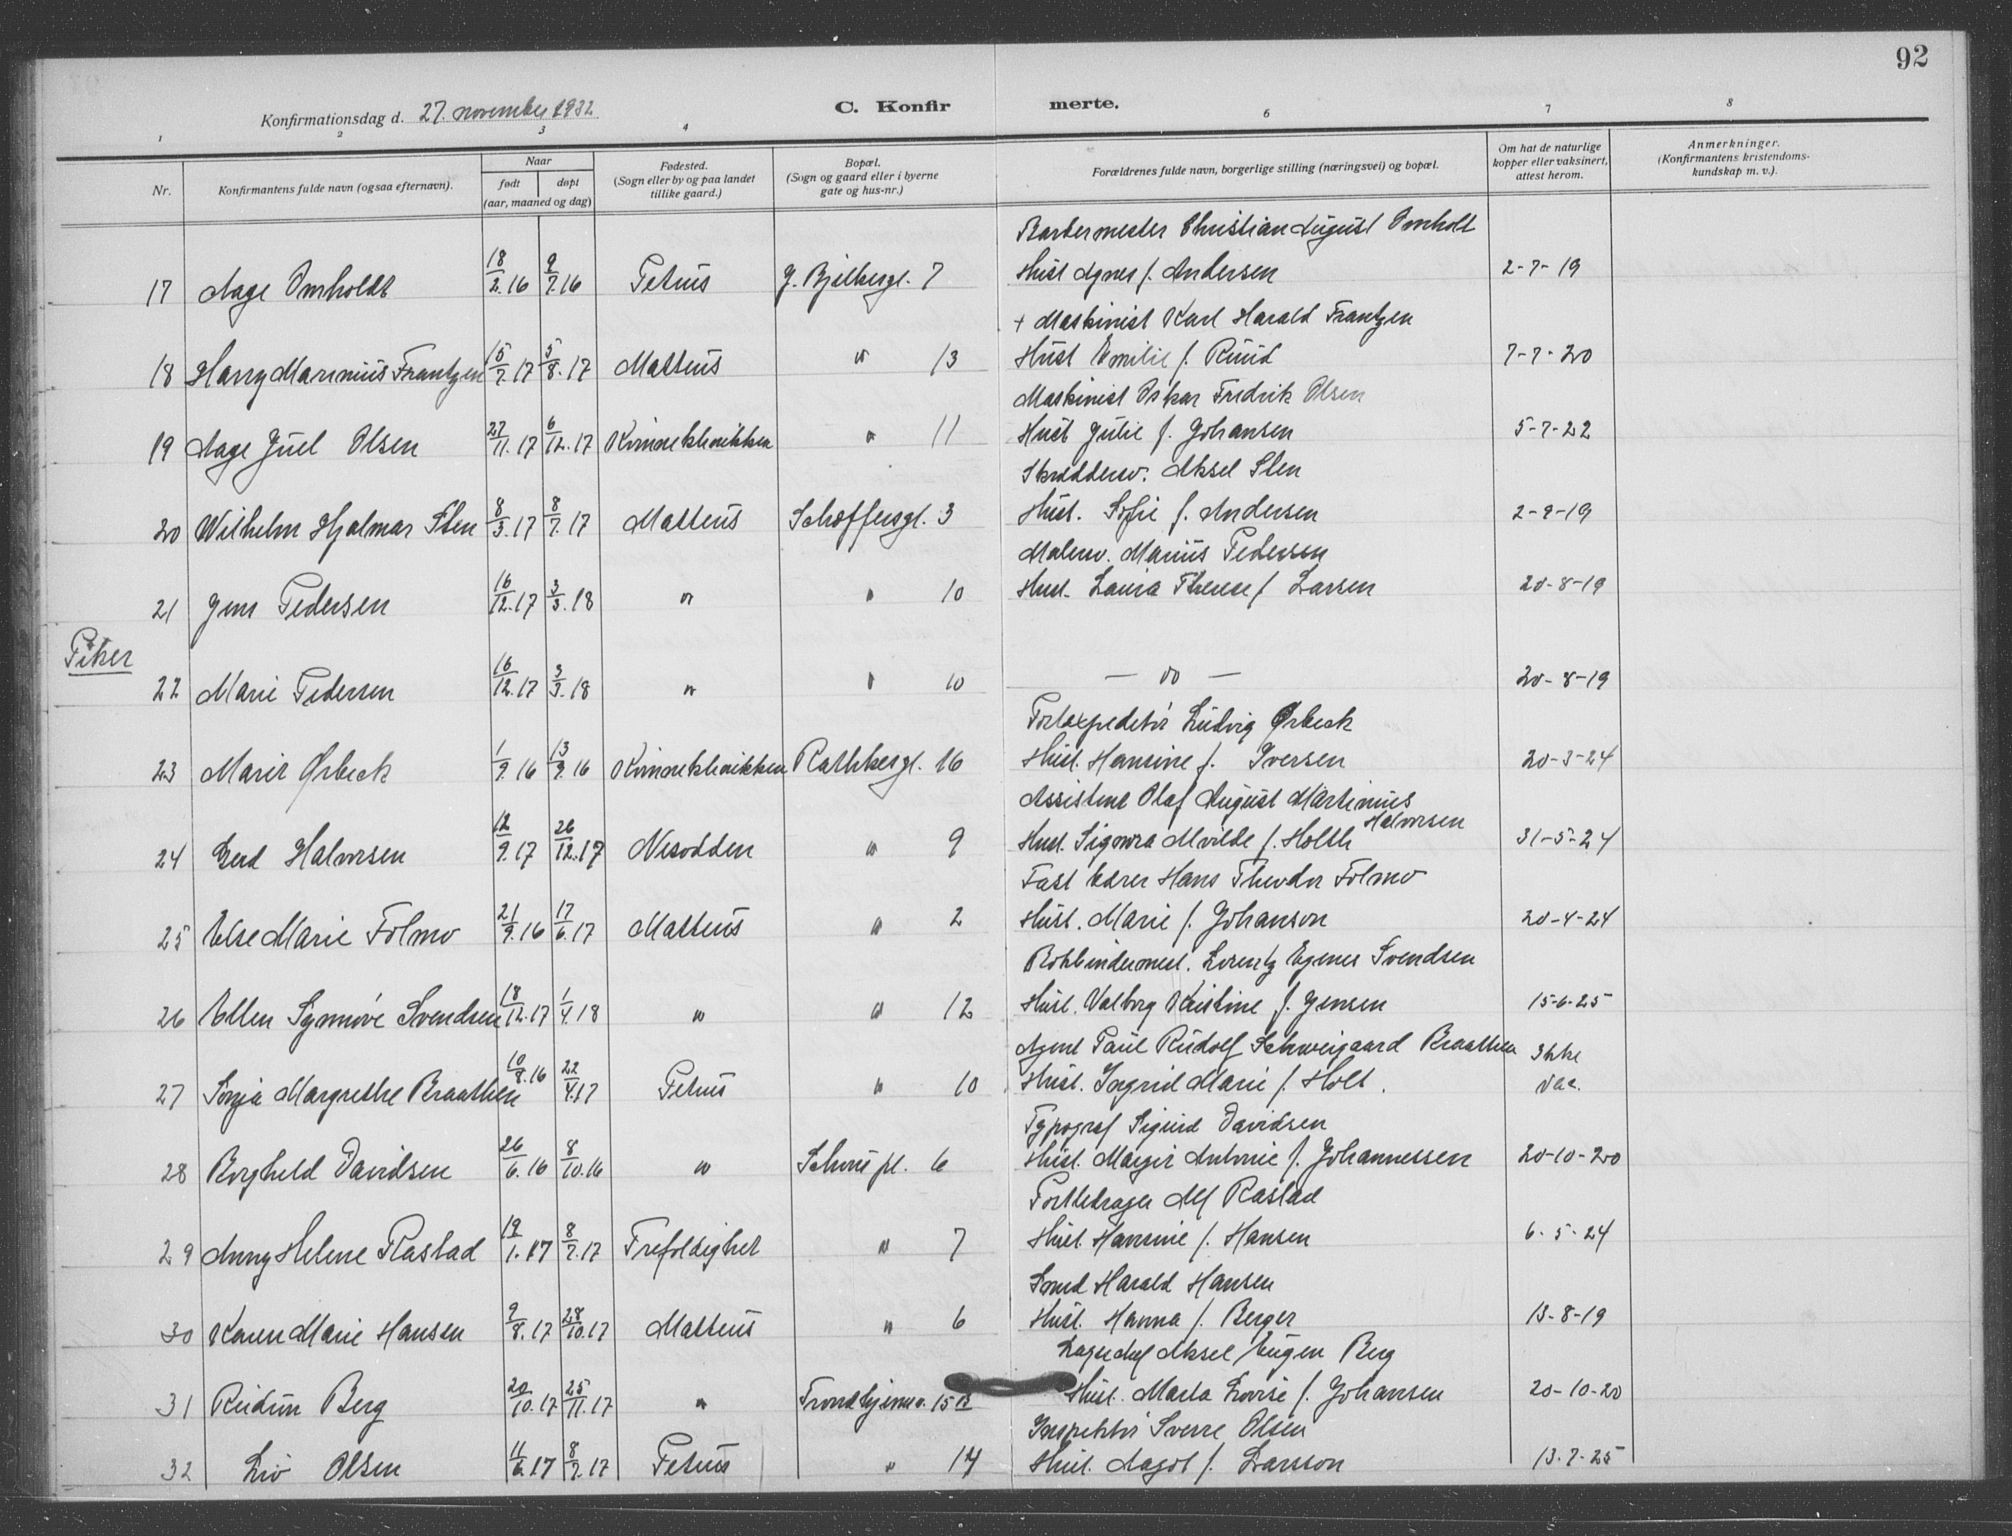 92
Konfirmationsdag d. 27. november 1932. C. Konfir merte.
1 2 3 4 6 7 8
Nr. Konfirmantens fulde navn (ogsaa efternavn). Naar født døpt (aar, maaned og dag) Fødested. (Sogn eller by og paa landet tillike gaard.) Bopæl. (Sogn og gaard eller i byerne gate og hus-nr.) Forældrenes fulde navn, borgerlige stilling (næringsvei) og bopæl. Om hat de naturlige kopper eller vaksinert, attest herom. Anmerkninger. (Konfirmantens kristendoms-kundskap m. v.).
Barbermester Christian August Omholt
17 Aage Omholdt 18/2.16 9/7.16 Petrus G. Bjelkesgt. 7 Hust Agnes f. Andersen 2-7-19
+ Maskinist Karl Harald Frantzen
18 Harry Marinius Frantzen 15/7.17 5/8.17 Matteus " 13 Hust Emilie f. Ruud 7-7-20
Maskinist Oskar Fredrik Olsen
19 Aage Juel Olsen 27/11.17 6/12.17 Kvinneklinikken " 11 Hust Julie f. Johansen 5-7-22
Skreddersv. Aksel Sten
20 Wilhelm Hjalmar Sten 8/3.17 8/7.17 Matteus Schæffersgt. 3 Hust. Sofie f. Andersen 2-9-19
Malersv. Marius Pedersen
21 Jens Pedersen 16/12.17 3/3.18 " " 10 Hust. Laura Therese f. Larsen 20-8-19
Piker
22 Marie Pedersen 16/12.17 3/3.18 " " 10 — do — 20-8-19
Postexpeditør Ludvig Ørbeck
23 Marit Ørbeck 1/9.16 13/9.16 Kvinneklinikken Rathkesgt. 16 Hust. Hansine f. Iversen 20-3-24
Assistent Olaf August Martinius Halvorsen
24 Gerd Halvorsen 12/9.17 26/12.17 Nesodden " 9 Hust. Signora Alvilde f. Holth 31-5-24
Fast bærer Hans Theodor Folmo
25 Else Marie Folmo 21/9.16 17/6.17 Matteus " 2 Hust. Marie f. Johanson 20-4-24
Bokbindermest. Lorentz Egenes Svendsen
26 Ellen Synnøve Svendsen 18/12.17 1/4.18 " " 12 Hust. Valborg Kristine f. Jensen 15-6-25
Agent Paul Rudolf Schweigaard Braathen Ikke
27 Sonja Margrethe Braathen 10/8.16 22/4.17 Petrus " 10 Hust. Ingrid Marie f. Holt. vac.
Typograf Sigurd Davidsen
28 Borghild Davidsen 26/6.16 8/10.16 " Schous pl. 6 Hust. Margit Antonie f. Johannessen 20-10-20
Alf Rastad
29 Anny Helene Rastad 19/1.17 8/7.17 Trefoldighet " 7 Hust. Hansine f. Hansen 6-5-24
Smed Harald Hansen
30 Karen Marie Hansen 9/8.17 28/10.17 Matteus " 6 Hust. Hanna f. Berger 13-8-19
Aksel Eugen Berg
31 Reidun Berg 20/10.17 25/11.17 " Trondhjemsv. 15 B Hust. Marta Lovise f. Johansen 20-10-20
Inspektør Sverre Olsen
32 Liv Olsen 11/6.17 8/7.17 Petrus " 14 Hust. Aagot f. Larsson 13-7-25